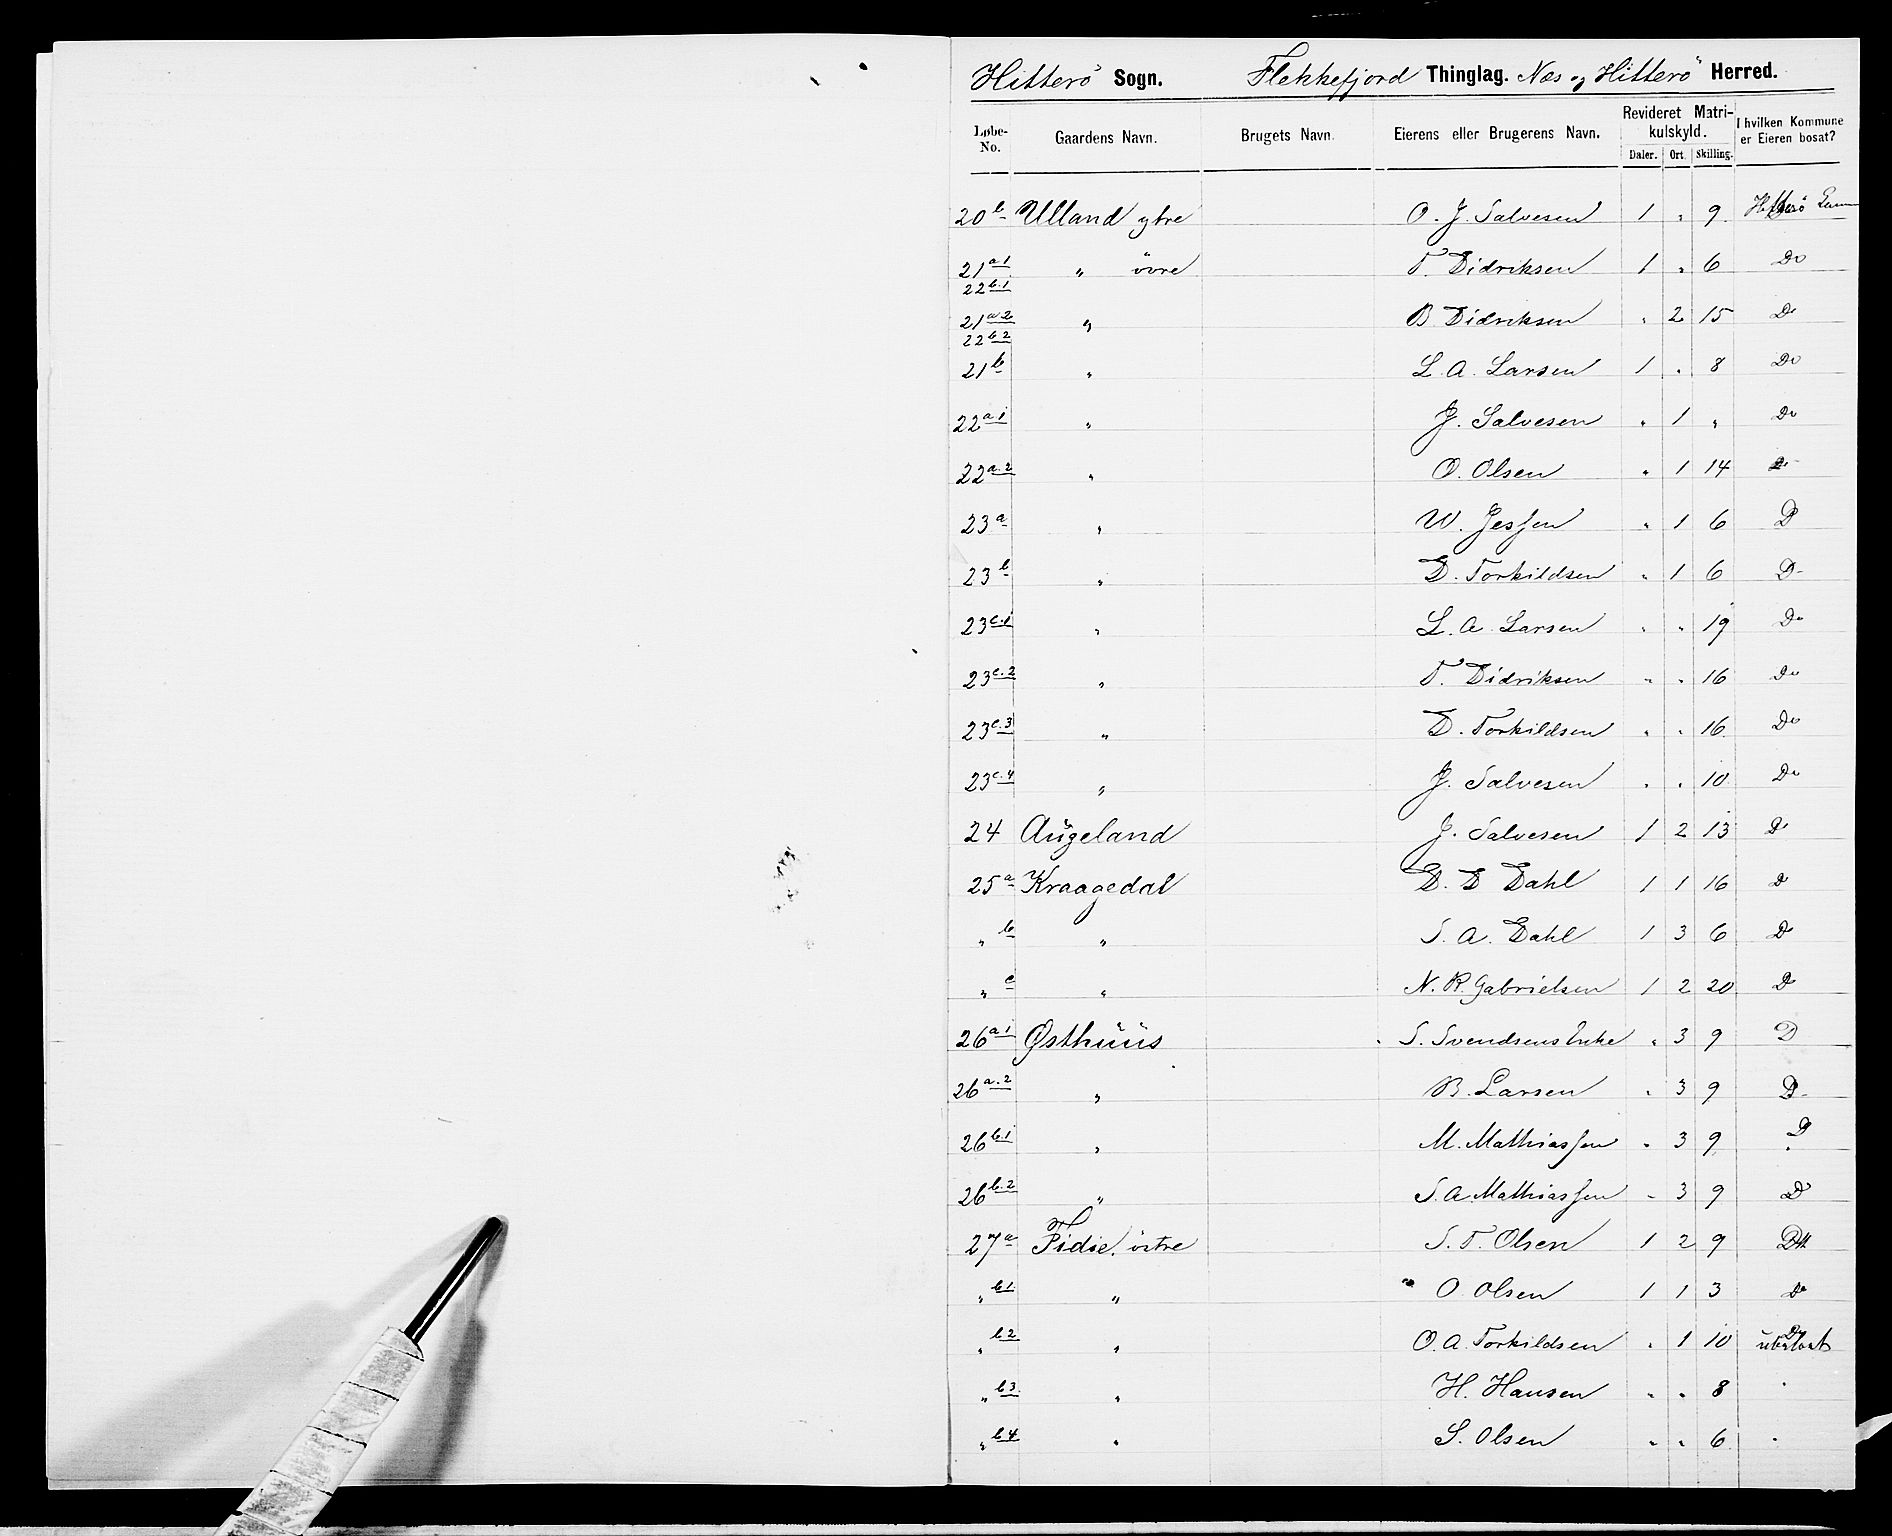 Hitterö Sogn. Flekkefjord Thinglag. Næs og Hitterö Herred.
Løbe-No. Gaardens Navn. Brugets Navn. Eierens eller Brugerens Navn. Revideret Matrikulskyld. Daler. Ort. Skilling. I hvilken Kommune er Eieren bosat?
20 b Ulland ytre O. J. Salvesen 1 " 9 Hitterö
21 a1 22 b.1 " övre T. Didriksen 1 " 6 Do
21 a2 22 b2 " B Didriksen " 2 15 Do
21 b " L. A. Larsen 1 " 8 Do
22 a.1 " J. Salvesen " 1 " Do
22 a.2 " O. Olsen " 1 14 Do
23 a " W. Jessen " 1 6 D
23 b " D. Torkildsen " 1 6 D
23 c.1 " L. A. Larsen " " 19 Do
23 c.2 " T. Didriksen " " 16 Do
23 c.3 " D. Torkildsen " " 16 Do
23 c.4 " J. Salvesen " " 10 Do
24 Augeland J. Salvesen 1 2 13 Do
25 a Kraagedal D. D Dahl 1 1 16 D
" b " S. A. Dahl 1 3 6 Do
" c " N. R. Gabrielsen 1 2 20 Do
26 a1 Østhuus S. Svendsens Enke " 3 9 D
26 a.2 " B. Larsen " 3 9 D
26 b.1 " M. Mathiassen " 3 9 D
26 b.2 " S. A. Mathiassen " 3 9 D
27 a Fidie östre S. T. Olsen 1 2 9 Dtt
" b1 " O Olsen 1 1 3 Do
" b2 " O. A. Torkildsen " 1 10 Do
" b3 " H. Hansen " " 8 "
" b4 " S. Olsen " " 6 "